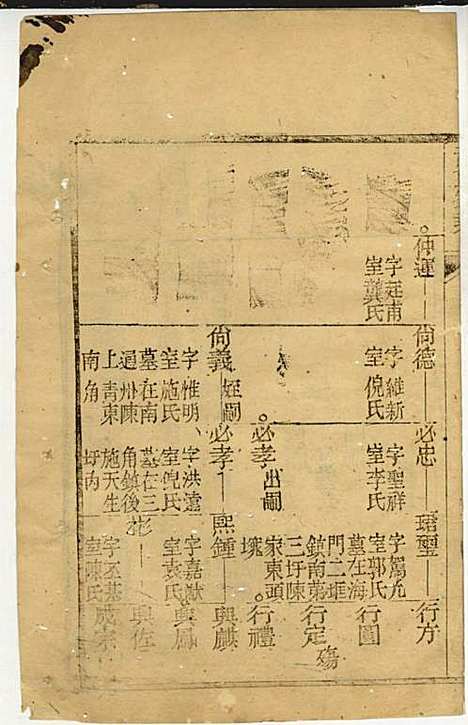 仲運 尚德 必忠 璽 行方
字廷甫 字維新 字聖祥 字駕九
室龔氏 室倪氏 室李氏 室郭氏
墓在海 行圓
門二堆
鎮南第 行定 殤
三圩陳
家東頭
必孝 出嗣 行禮
尚義 姪嗣 必孝 熙鍾 興麒
字惟明、 字洪遠 字嘉猷 興鳳
室施氏 室倪氏 室袁氏
墓在南 墓在三 彬 興佐
通州陳 角鎮後
上青東 施天生 字丕基 成宗
南角 圩内 室陳氏